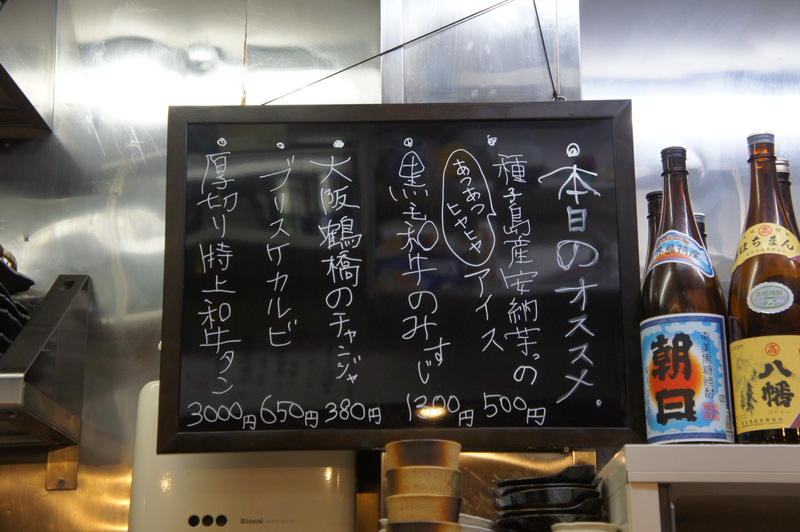 本日のオススメ。
種子島産安納芋っの
あつあつ
ヒヤヒヤ
アイス
500円
黒毛和牛のみすじ
1300円
大阪鶴橋のチャンジャ
380円
ブリスケカルビ
650円
厚切り特上和牛タン
3000円
奄美黒糖焼酎
朝日
はちまん
25
八幡
Rinnai